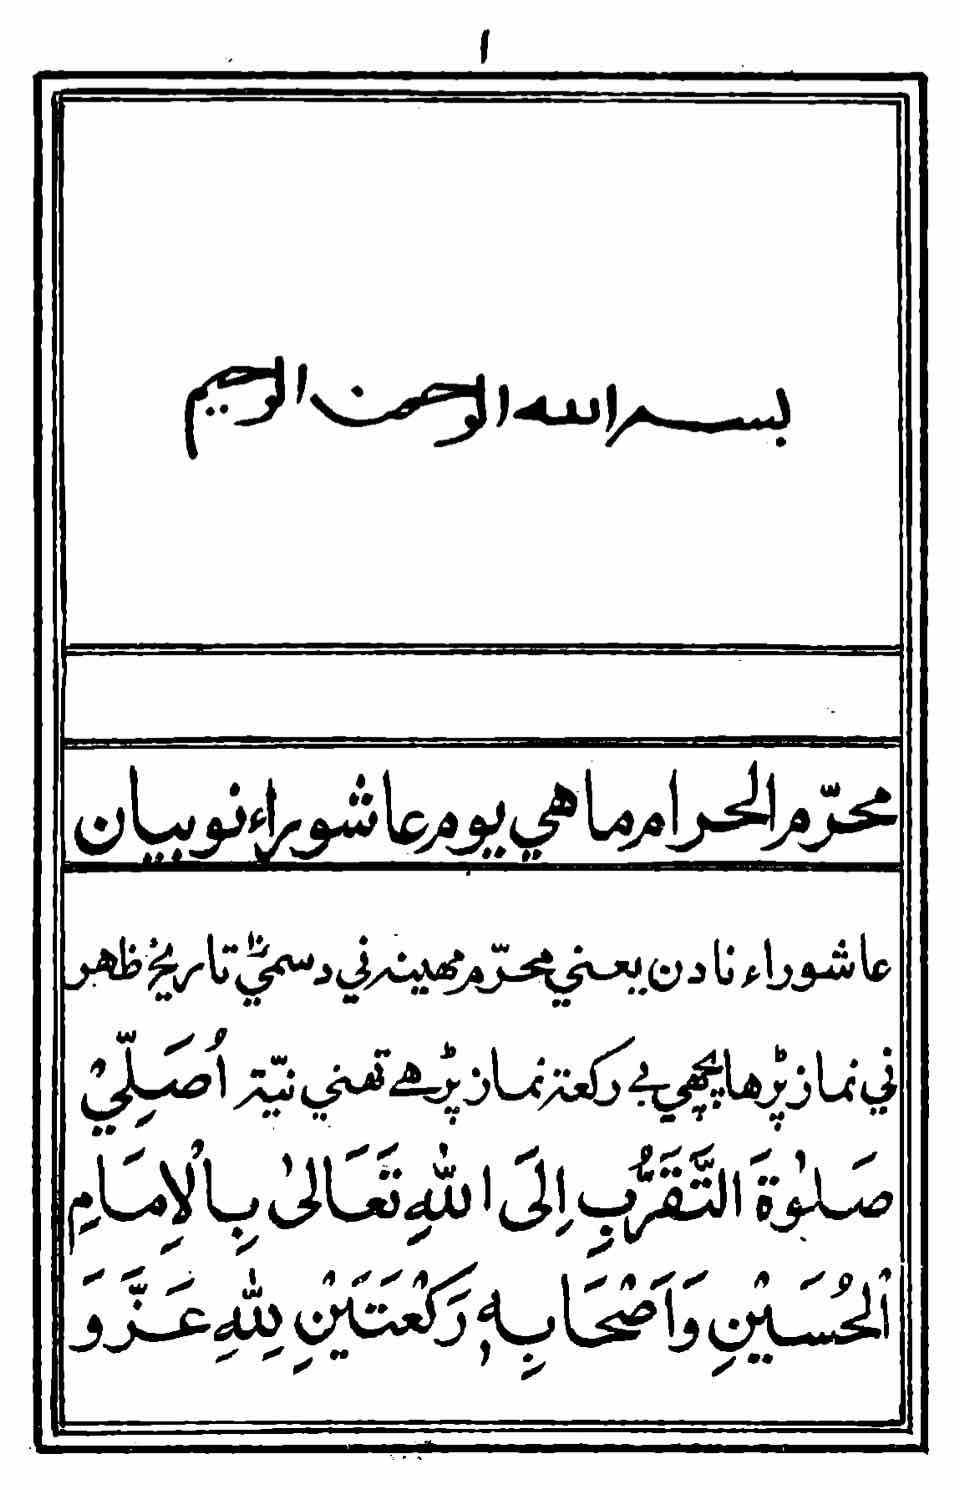 ١
بسم الله الرحمن الرحيم
محرّم الحرام ماهي يوم عاشوراء نو بيان
عاشوراء نا دن يعني محرّم مهينہ ني دسميْ تاريخ ظهر
ني نماز پڑها پچھي بے ركعة نماز پڑهے تهني نيّة اُصَلِّيْ
صَلٰوةَ التَّقَرُّبِ اِلَى اللهِ تَعَالىٰ بِالْاِمَامِ
الْحُسَيْنِ وَاَصْحَابِهٖ رَكْعَتَيْنِ لِلّٰهِ عَزَّ وَ